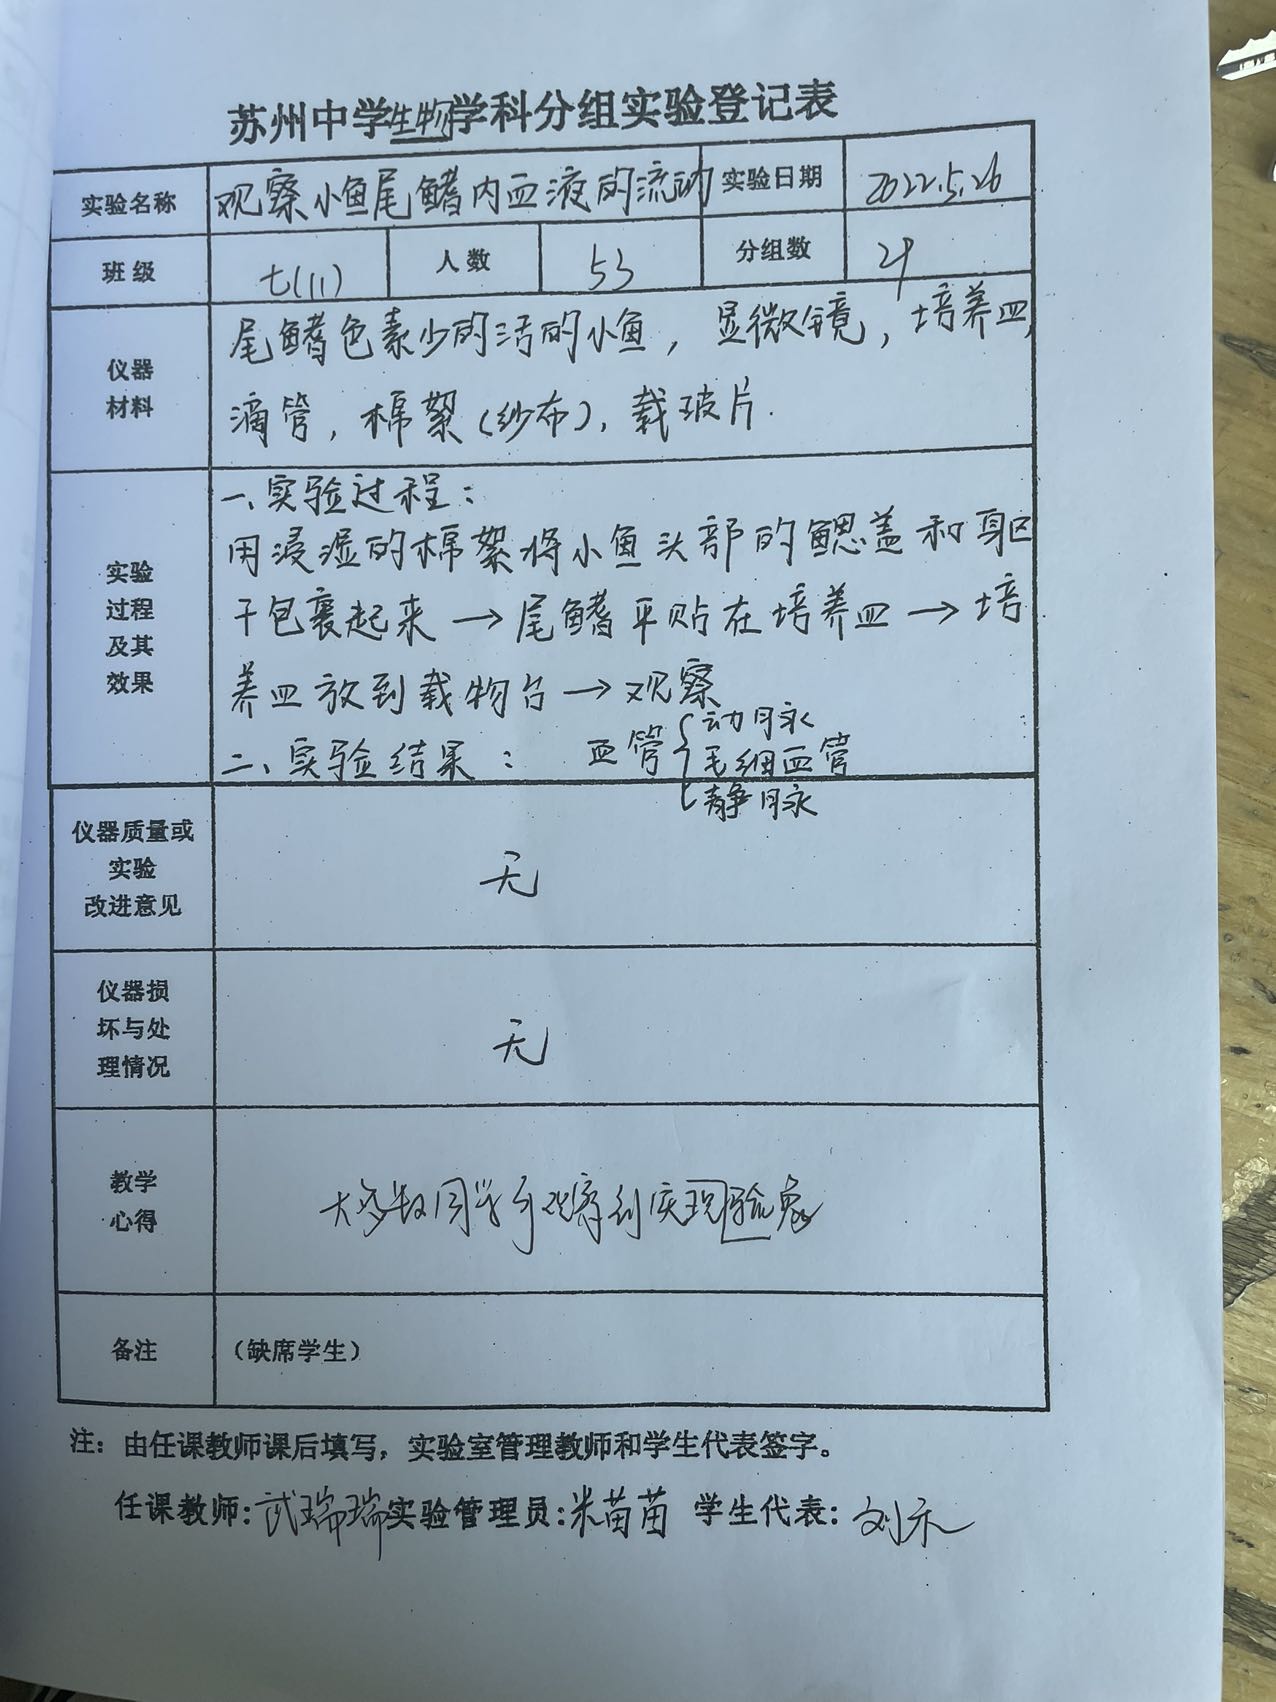 苏州中学生物学科分组实验登记表
实验名称 观察小鱼尾鳍内血液的流动 实验日期 2022.5.26
班级 七(11) 人数 53 分组数
仪器材料 尾鳍色素少的活的小鱼，显微镜，培养皿，
滴管，棉絮(纱布)，载玻片.
实验过程及其效果 一、实验过程：
用浸湿的棉絮将小鱼头部的鳃盖和躯
干包裹起来→尾鳍平贴在培养皿→培
养皿放到载物台→观察
二、实验结果： 血管{动脉
毛细血管
静脉
仪器质量或实验改进意见 无
仪器损坏与处理情况 无
教学心得 大多数同学可观察到实验现象
备注 （缺席学生）
注：由任课教师课后填写，实验室管理教师和学生代表签字。
任课教师:武瑞瑞 实验管理员:米苗苗 学生代表:刘禾